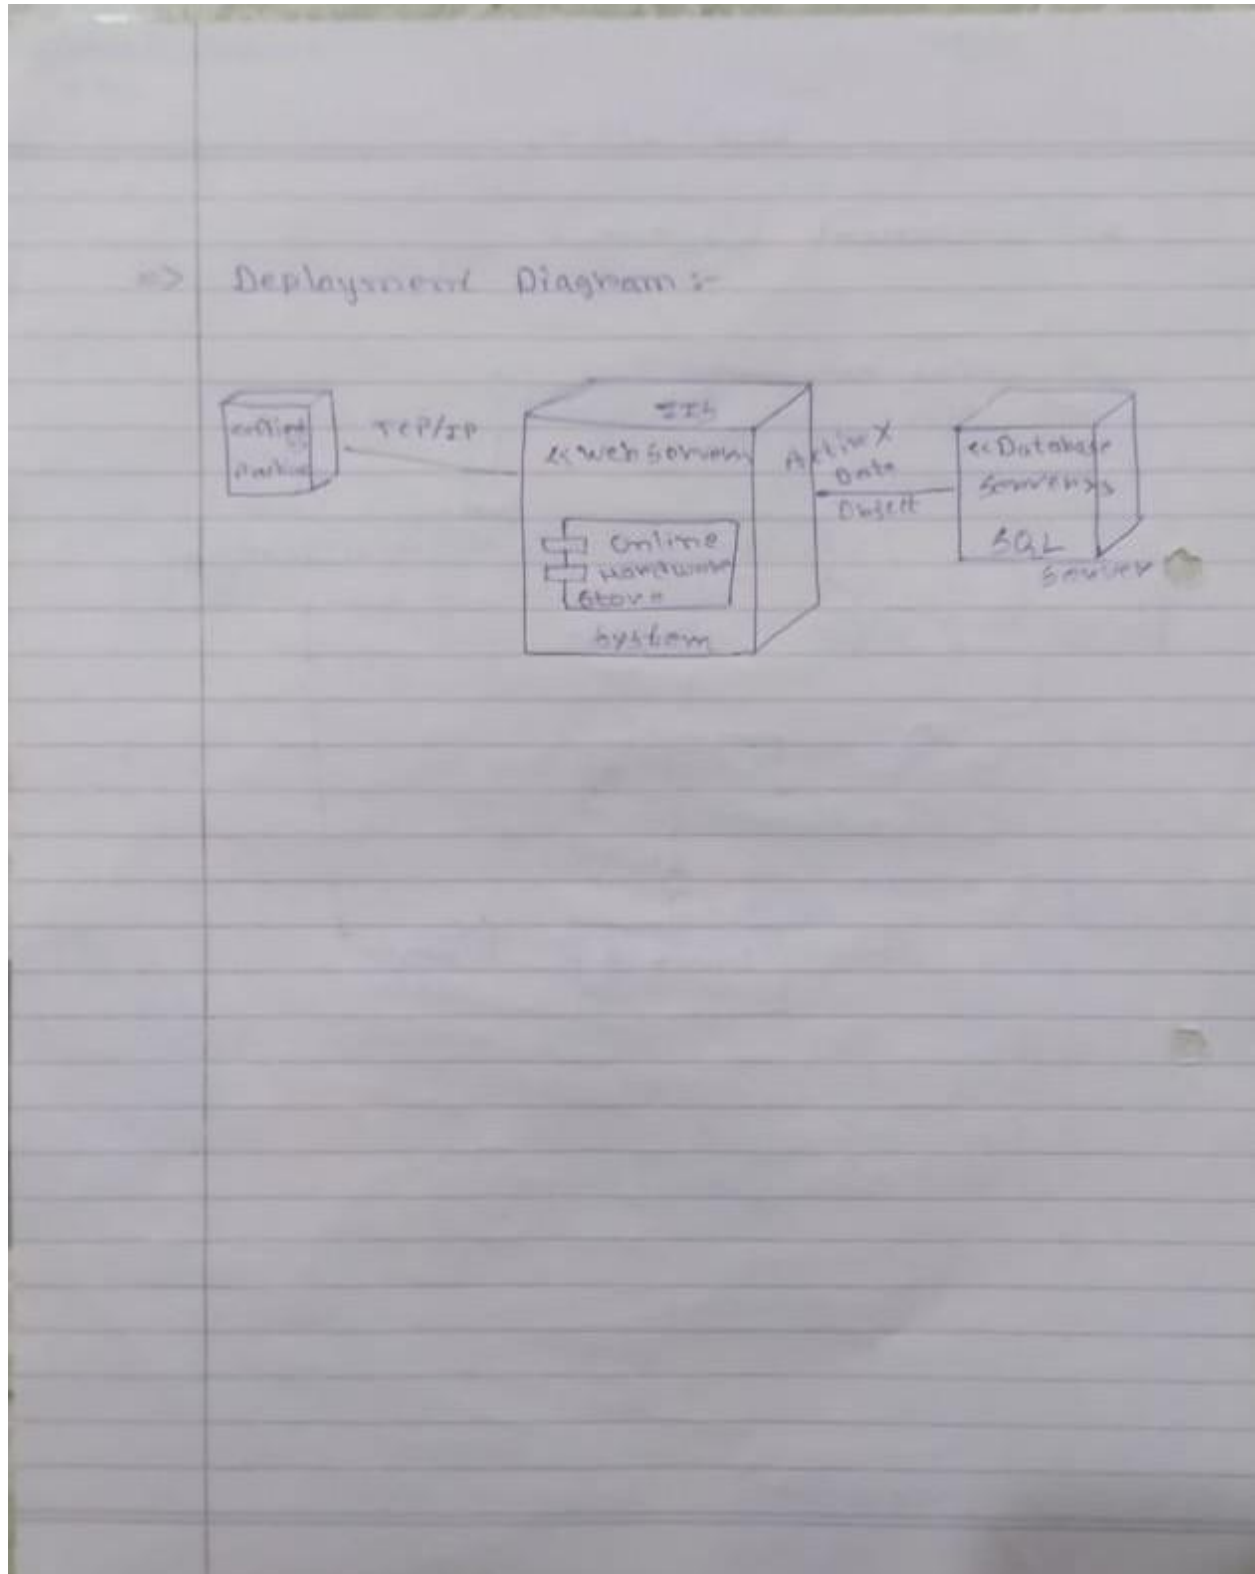 => Deployment Diagram :-
TCP/IP
IIS
<< Web Server
Online
Hardware
Store
System
Active X
Data
Object
<< Database
Server >>
SQL
Server